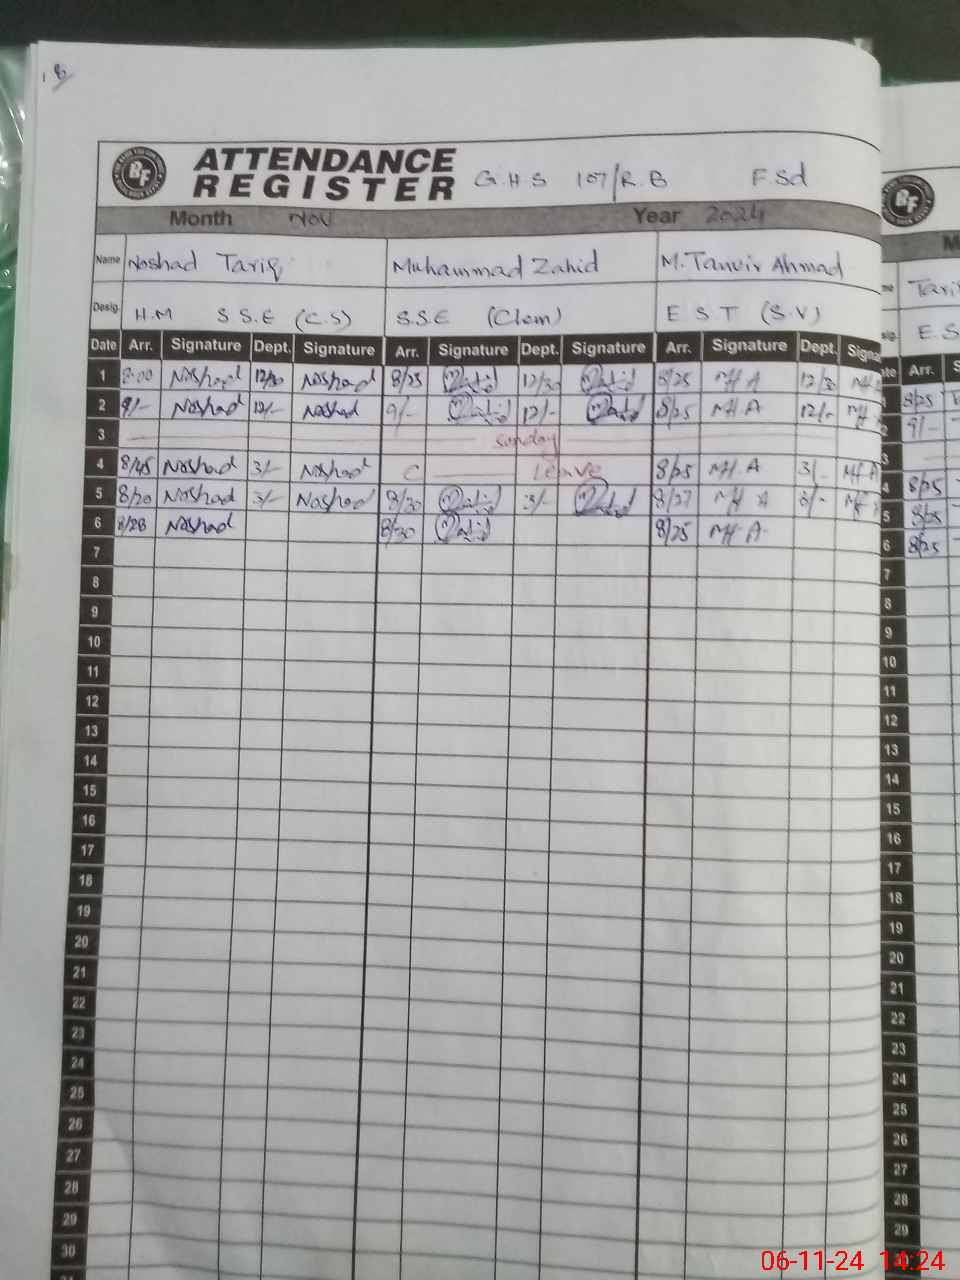 18
ATTENDANCE
REGISTER G.H.S 107/R.B F.Sd
Month Nov Year 2024 M
Name Noshad Tariq Muhammad Zahid M. Tanvir Ahmad
Desig. H.M S.S.E (C.S) S.S.E (Chem) E.S.T (S.V) E.S
Date Arr. Signature Dept. Signature Arr. Signature Dept. Signature Arr. Signature Dept. Signa Arr. S
1 8:00 Noshad 12/30 Noshad 8/25 Zahid 12/30 Zahid 8/25 MH.A 12/30 MH 8/25
2 9/- Noshad 12/- Noshad 9/- Zahid 12/- Zahid 8/25 MH.A 12/- MH 9/-
3 Sunday 3
4 8/45 Noshad 3/- Noshad C Leave 8/25 MH.A 3/- MH.A 4 8/25
5 8/20 Noshad 3/- Noshad 8/30 Zahid 3/- Zahid 8/27 MH.A 3/- MH 5 8/25
6 8/28 Noshad 8/30 Zahid 8/25 MH.A 6 8/25
7 7
8 8
9 9
10 10
11 11
12 12
13 13
14 14
15 15
16 16
17 17
18 18
19 19
20 20
21 21
22 22
23 23
24 24
25 25
26 26
27 27
28 28
29 29
30
06-11-24 14:24